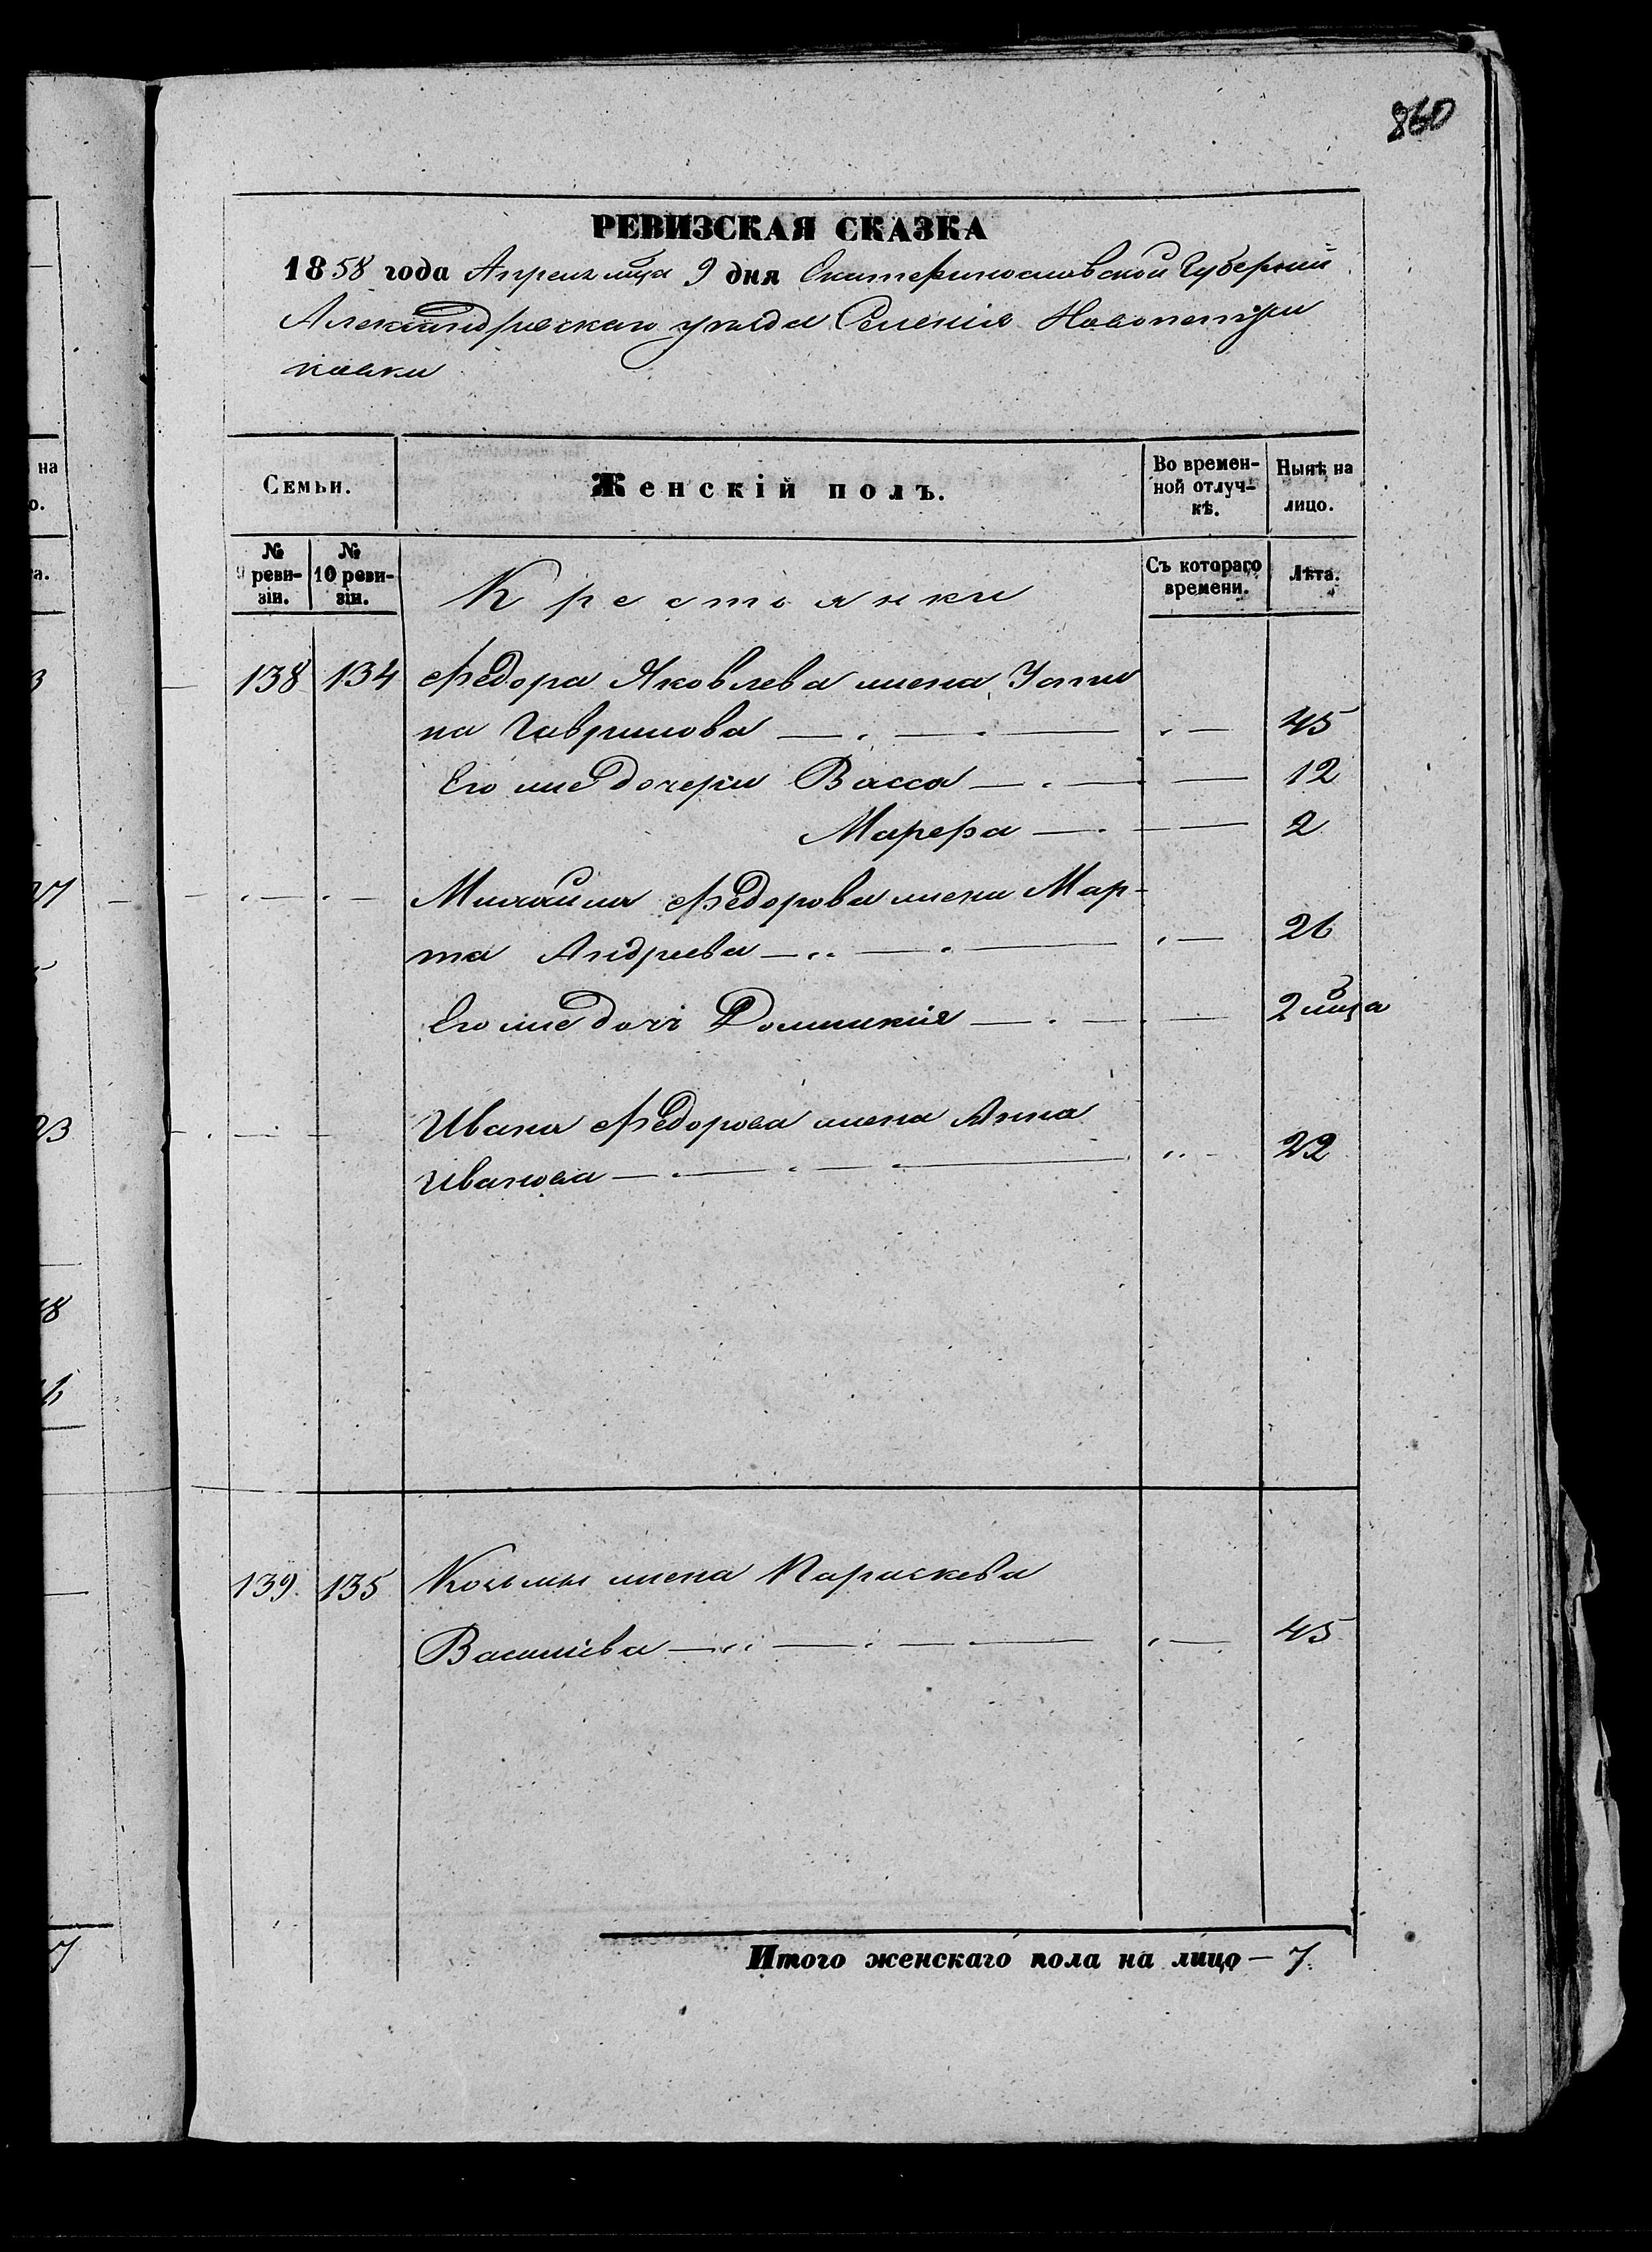 860
РЕВИЗСКАЯ СКАЗКА
1858 года Апреля мца 9 дня Екатеринославской Губерніи
Александровскаго уѣзда Селенія Новопетри
ковки
Семьи.
Женскій полъ.
Во времен-
ной отлуч-
кѣ.
Нынѣ на
лицо.
№
9 реви-
зіи.
№
10 реви-
зіи.
Крестьянки
Съ котораго
времени.
Лѣта.
138 134 Федора Яковлева жена Усти
на Гаврилова 45
Его же дочери Васса 12
Марфа 2
Михайла Федорова жена Мар-
та Андреева 26
Его же дочь Домникія 2 мца
Ивана Федорова жена Анна
Иванова 22
139. 135 Козьмы жена Параскева
Васильева 45
Итого женскаго пола на лицо — 7.
на
о.
а.
3
27
23
18
7